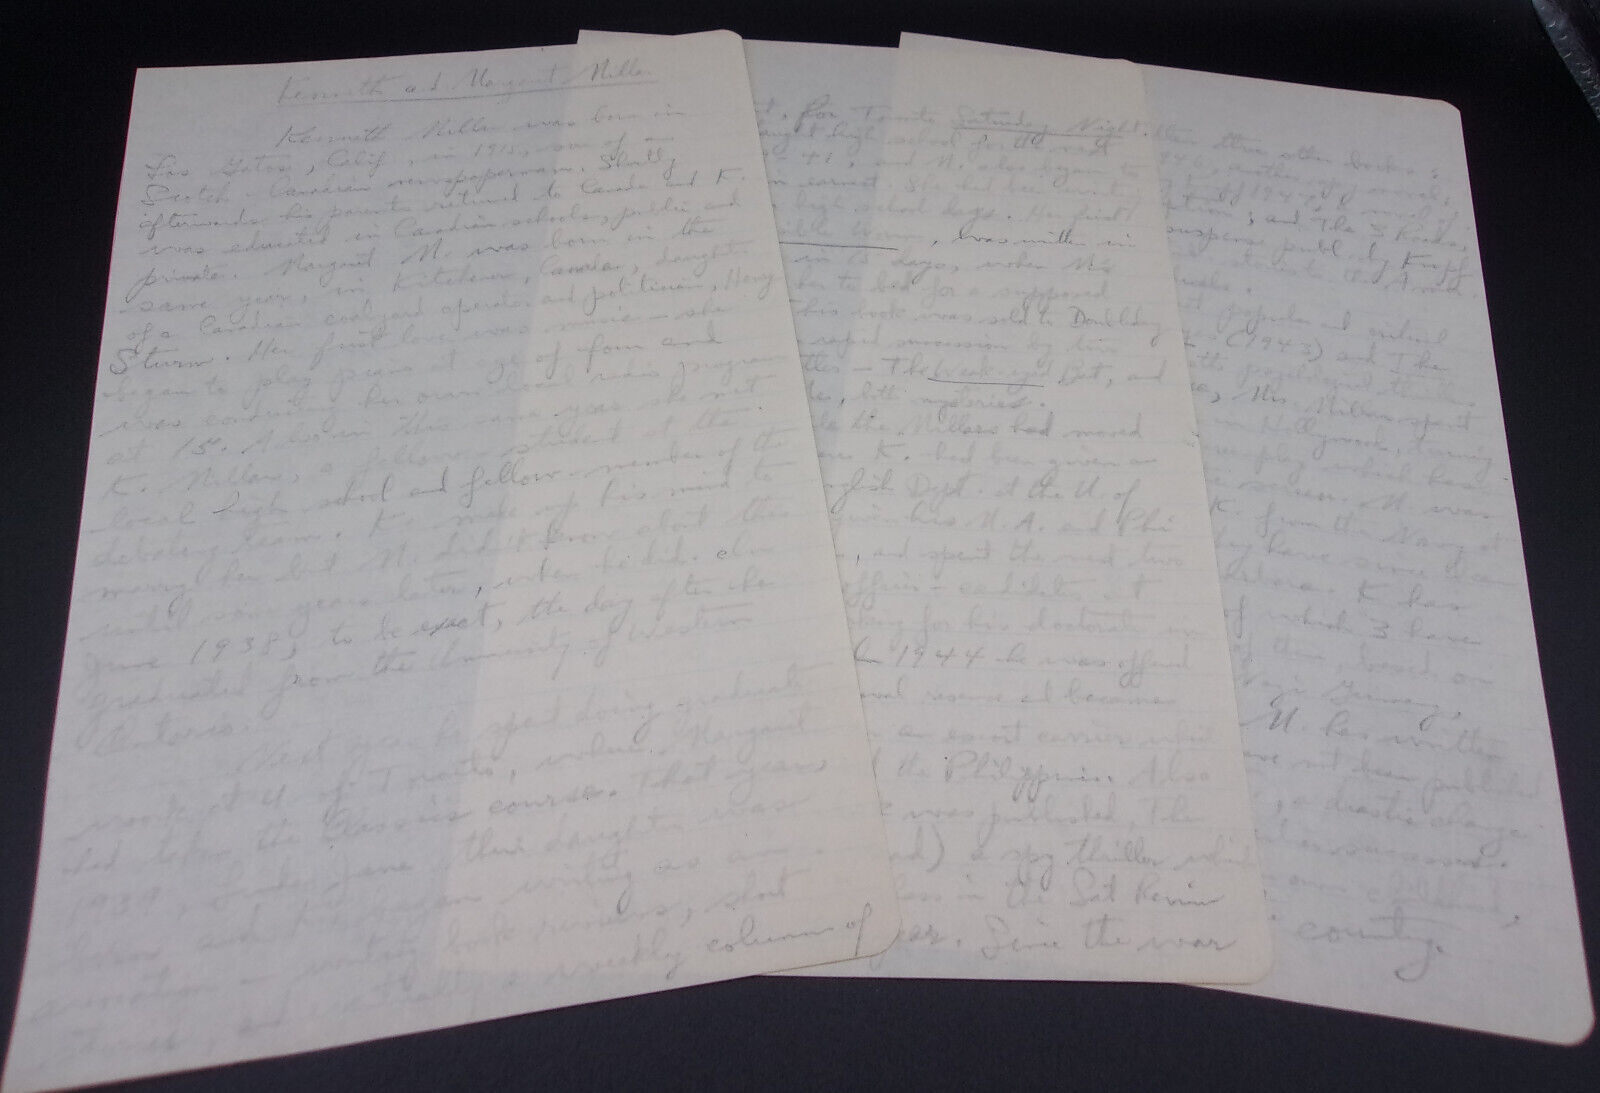 Kenneth and Margaret Millar
Kenneth Millar was born in
Los Gatos, Calif., in 1915, son of a
Scotch-Canadian newspaperman. Shortly
afterwards his parents returned to Canada and K.
was educated in Canadian schools, public and
private. Margaret M. was born in the
same year, in Kitchener, Canada, daughter
of a Canadian coalyard operator and politician, Henry
Sturm. Her first love was music - she
began to play piano at age of four and
was conducting her own local radio program
at 15. Also in this same year she met
K. Millar, a fellow-student at the
local high school and fellow-member of the
debating team. K. made up his mind to
marry her but M. didn't know about this
until some years later, when he did. In
June 1938, to be exact, the day after he
graduated from the University of Western
Ontario.
Next year he spent doing graduate
work at U. of Toronto, where Margaret
had taken the Classics course. That year
1939, Linda Jane their daughter was
born and K. began writing as an
avocation - writing book reviews, short
stories, and eventually a weekly column of
for Toronto Saturday Night.
taught high school for the next
- 41, and M. also began to
in earnest. She had been writing
high school days. Her first
sible Worm, was written in
in 15 days, when M's
her to bed for a supposed
This book was sold to Doubleday
rapid succession by two
- The Weak-eyed Bat, and
both mysteries.
the Millars had moved
K. had been given a
glish Dept. at the U. of
given his M.A. and Phi
, and spent the next two
officer-candidates at
for his doctorate in
1944 he was offered
naval reserve and became
on an escort carrier which
the Philippines. Also
was published, The
a spy thriller which
in the Sat Review
ear. Since the war
three other books:
1946, another spy novel;
of 1947; a novel of
ption; and The 3 Roads,
suspense publ. by Knopf
popular and critical
(1943) and The
psychological thrillers
Mrs. Millar spent
in Hollywood, doing
screenplay which has
screen. M. was
K. from the Navy at
they have since been
K. has
of which 3 have
of them, based on
Nazi Germany,
M. has written
not been published
, a drastic change
country.